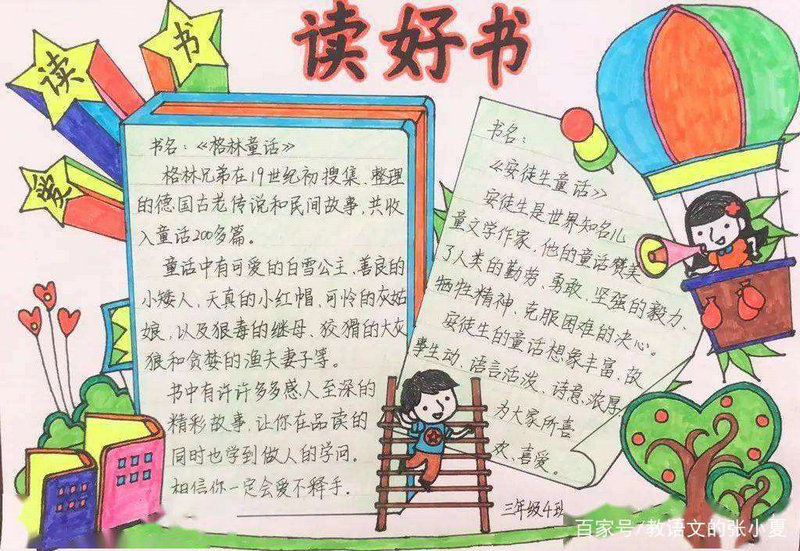 读好书
读
书
爱
书名：《格林童话》
格林兄弟在19世纪初搜集、整理
的德国古老传说和民间故事，共收
入童话200多篇。
童话中有可爱的白雪公主、善良的
小矮人、天真的小红帽、可怜的灰姑
娘，以及狠毒的继母、狡猾的大灰
狼和贪婪的渔夫妻子等。
书中有许许多多感人至深的
精彩故事，让你在品读的
同时也学到做人的学问。
相信你一定会爱不释手。
书名：
《安徒生童话》
安徒生是世界知名儿
童文学作家，他的童话赞美
了人类的勤劳、勇敢、坚强的毅力、
牺牲精神、克服困难的决心。
安徒生的童话想象丰富、故
事生动、语言活泼、诗意浓厚，
为大家所喜
欢、喜爱。
三年级4班
百家号/教语文的张小夏